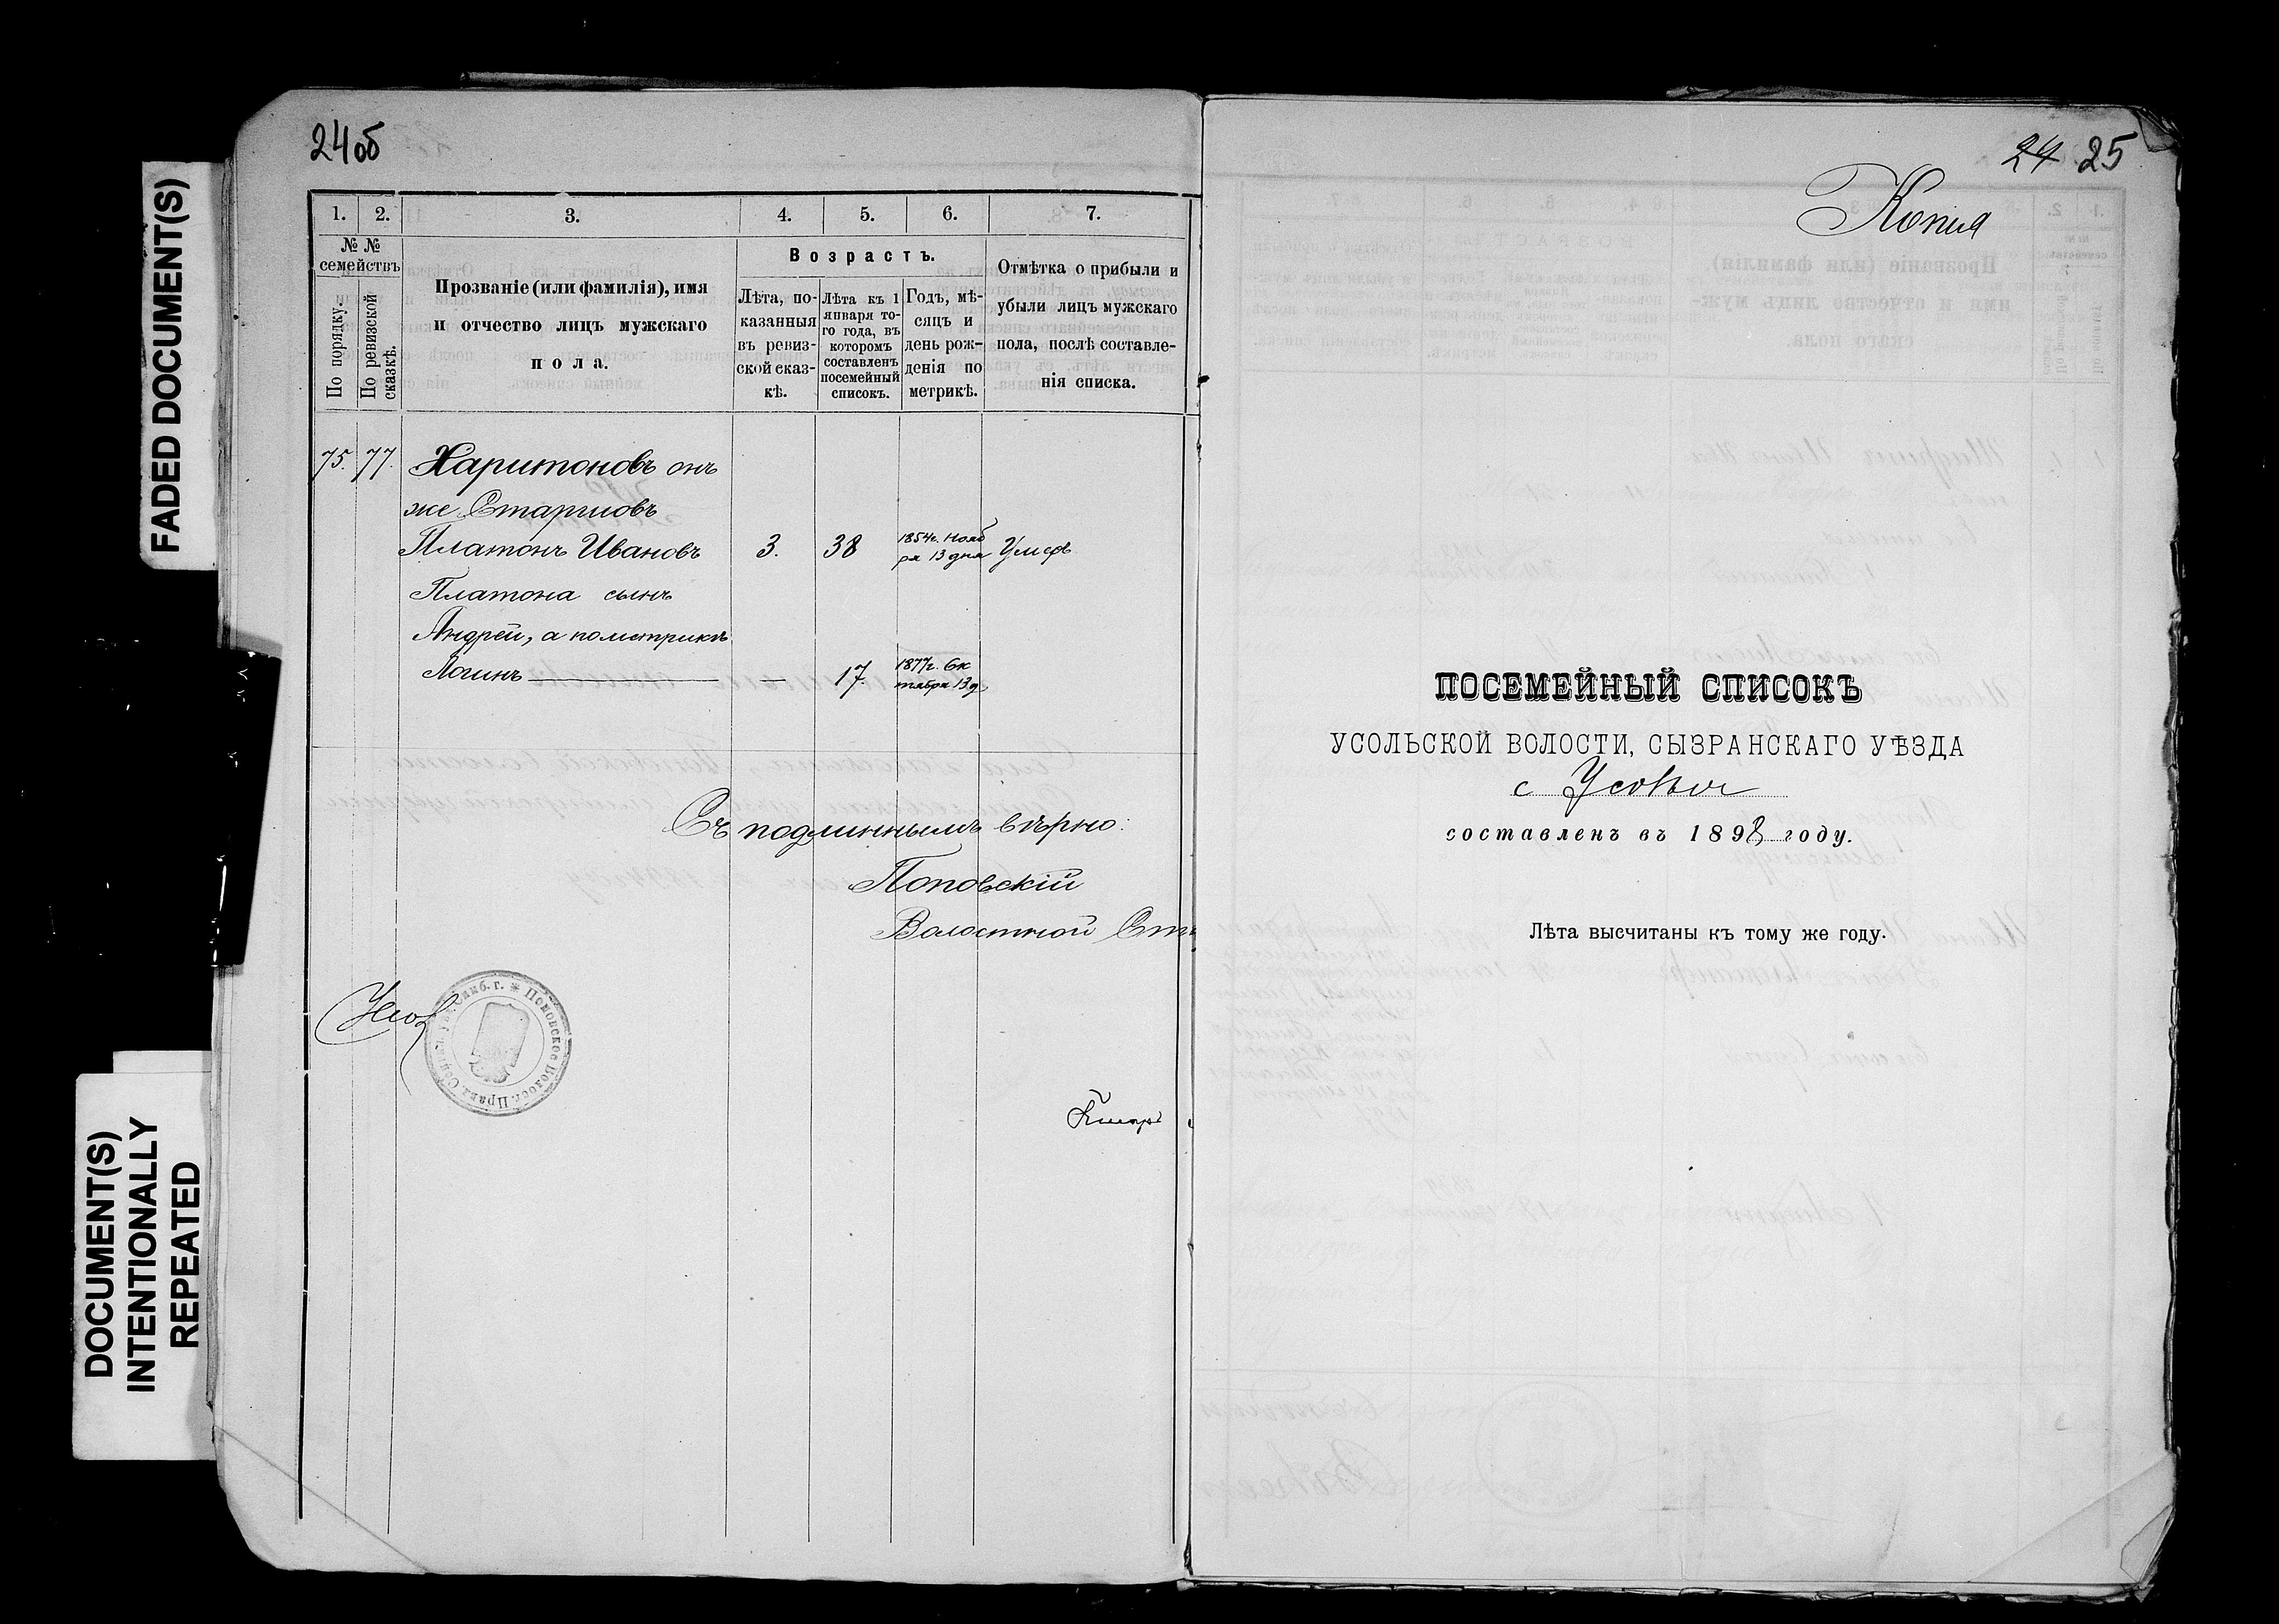 FADED DOCUMENT(S)
DOCUMENT(S)
INTENTIONALLY
REPEATED
24об
1. 2. 3. 4. 5. 6. 7.
№ №
семействъ
По порядку.
По ревизской
сказкѣ.
Прозваніе (или фамилія), имя
и отчество лицъ мужскаго
пола.
Возрастъ.
Лѣта, по-
казанныя
въ ревиз-
ской сказ-
кѣ.
Лѣта къ 1
января то-
го года, въ
которомъ
составленъ
посемейный
списокъ.
Годъ, мѣ-
сяцъ и
день рож-
денія по
метрикѣ.
Отмѣтка о прибыли и
убыли лицъ мужскаго
пола, послѣ составле-
нія списка.
75. 77. Харитоновъ онъ
же
Платонъ Ивановъ 3. 38 1854г. Нояб
ря 13 дня
Платона сынъ
Андрей, а по метрикѣ
Логинъ — — 17. 1877г. Ок
тября 13 д.
Съ подлиннымъ вѣрно:
Поповскій
Волостной
Поповское Волост. Прав.
24 25
Копия
ПОСЕМЕЙНЫЙ СПИСОКЪ
УСОЛЬСКОЙ ВОЛОСТИ, СЫЗРАНСКАГО УѢЗДА
с Усолья
составленъ въ 1898 году.
Лѣта высчитаны къ тому же году.